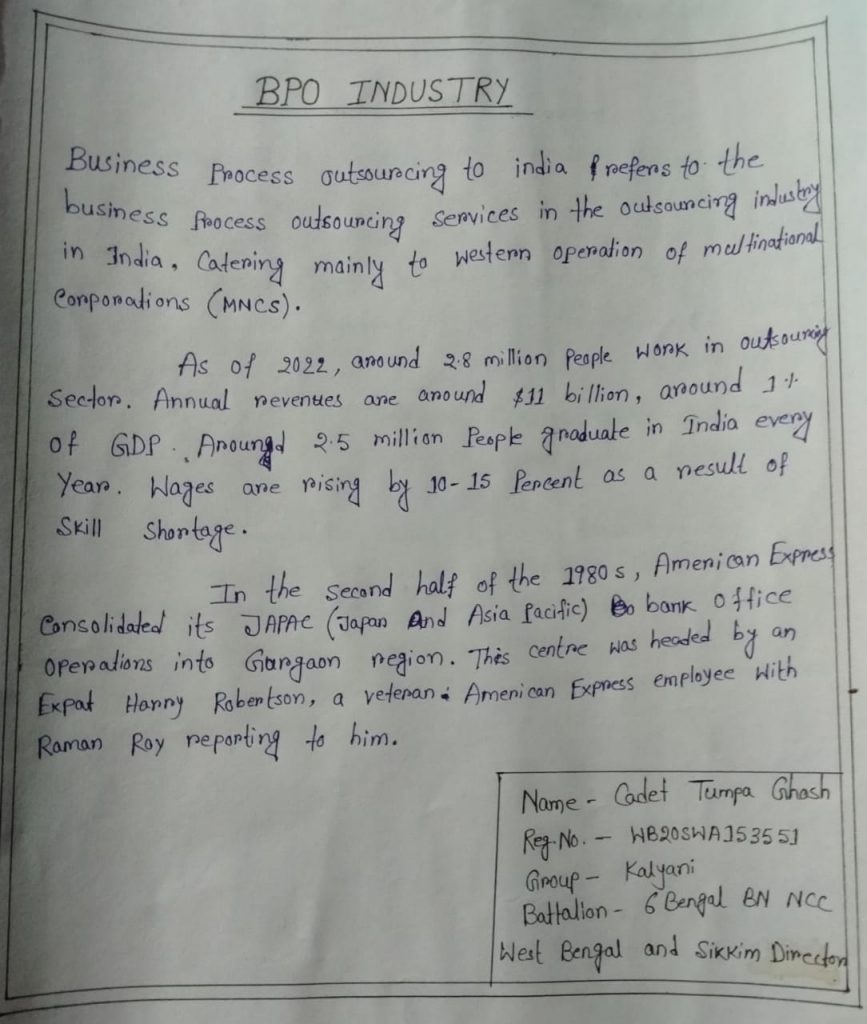 BPO INDUSTRY
Business Process outsourcing to india refers to the
business Process outsourcing services in the outsourcing industry
in India, Catering mainly to western operation of multinational
Corporations (MNCS).
As of 2022, around 2.8 million People work in outsourcing
Sector. Annual revenues are around $11 billion, around 1%
of GDP. Around 2.5 million People graduate in India every
Year. Wages are rising by 10-15 Percent as a result of
Skill Shortage.
In the second half of the 1980s, American Express
Consolidated its JAPAC (Japan And Asia Pacific) bank office
operations into Gurgaon region. This centre was headed by an
Expat Harry Robertson, a veteran American Express employee with
Raman Roy reporting to him.
Name - Cadet Tumpa Ghosh
Reg.No. - WB20SWA153551
Group - Kalyani
Battalion - 6 Bengal BN NCC
West Bengal and Sikkim Director